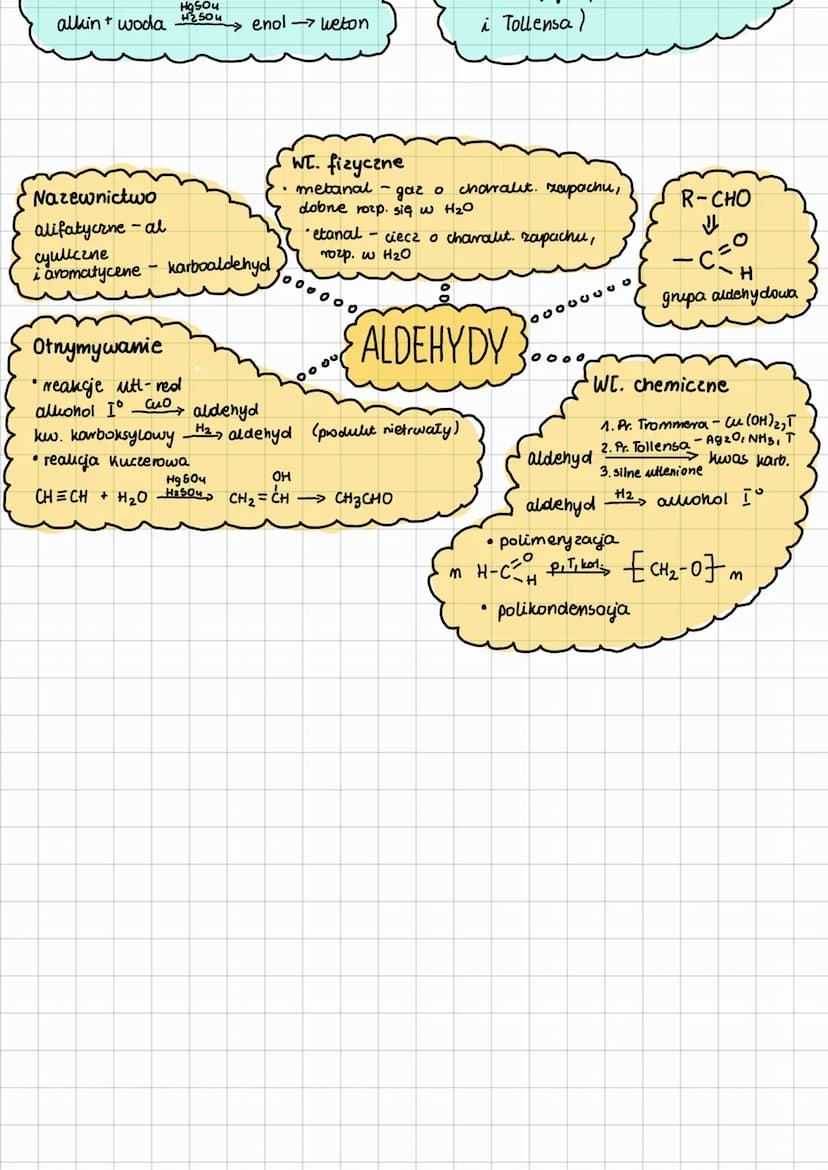 HgSO4
H2SO4
alkin + woda → enol → keton
i Tollensa)
Wł. fizyczne
• metanal – gaz o charakt. zapachu,
dobrze rozp. się w H2O
• etanal – ciecz o charakt. zapachu,
rozp. w H2O
Nazewnictwo
alifatyczne – al
cykliczne
i aromatyczne – karboaldehyd
R–CHO
⇓
–C=O
H
grupa aldehydowa
ALDEHYDY
Otrzymywanie
• reakcje utl-red
alkohol I° CuO → aldehyd
kw. karboksylowy H2 → aldehyd (produkt nietrwały)
• reakcja Kuczerowa
HgSO4
OH
CH≡CH + H2O H2SO4 → CH2=CH → CH3CHO
Wł. chemiczne
1. Pr. Trommera – Cu(OH)2, T
2. Pr. Tollensa – Ag2O, NH3, T
aldehyd → kwas karb.
3. silne utlenione
aldehyd H2 → alkohol I°
• polimeryzacja
n H–C=O H p,T,kat. → [CH2–O]n
• polikondensacja